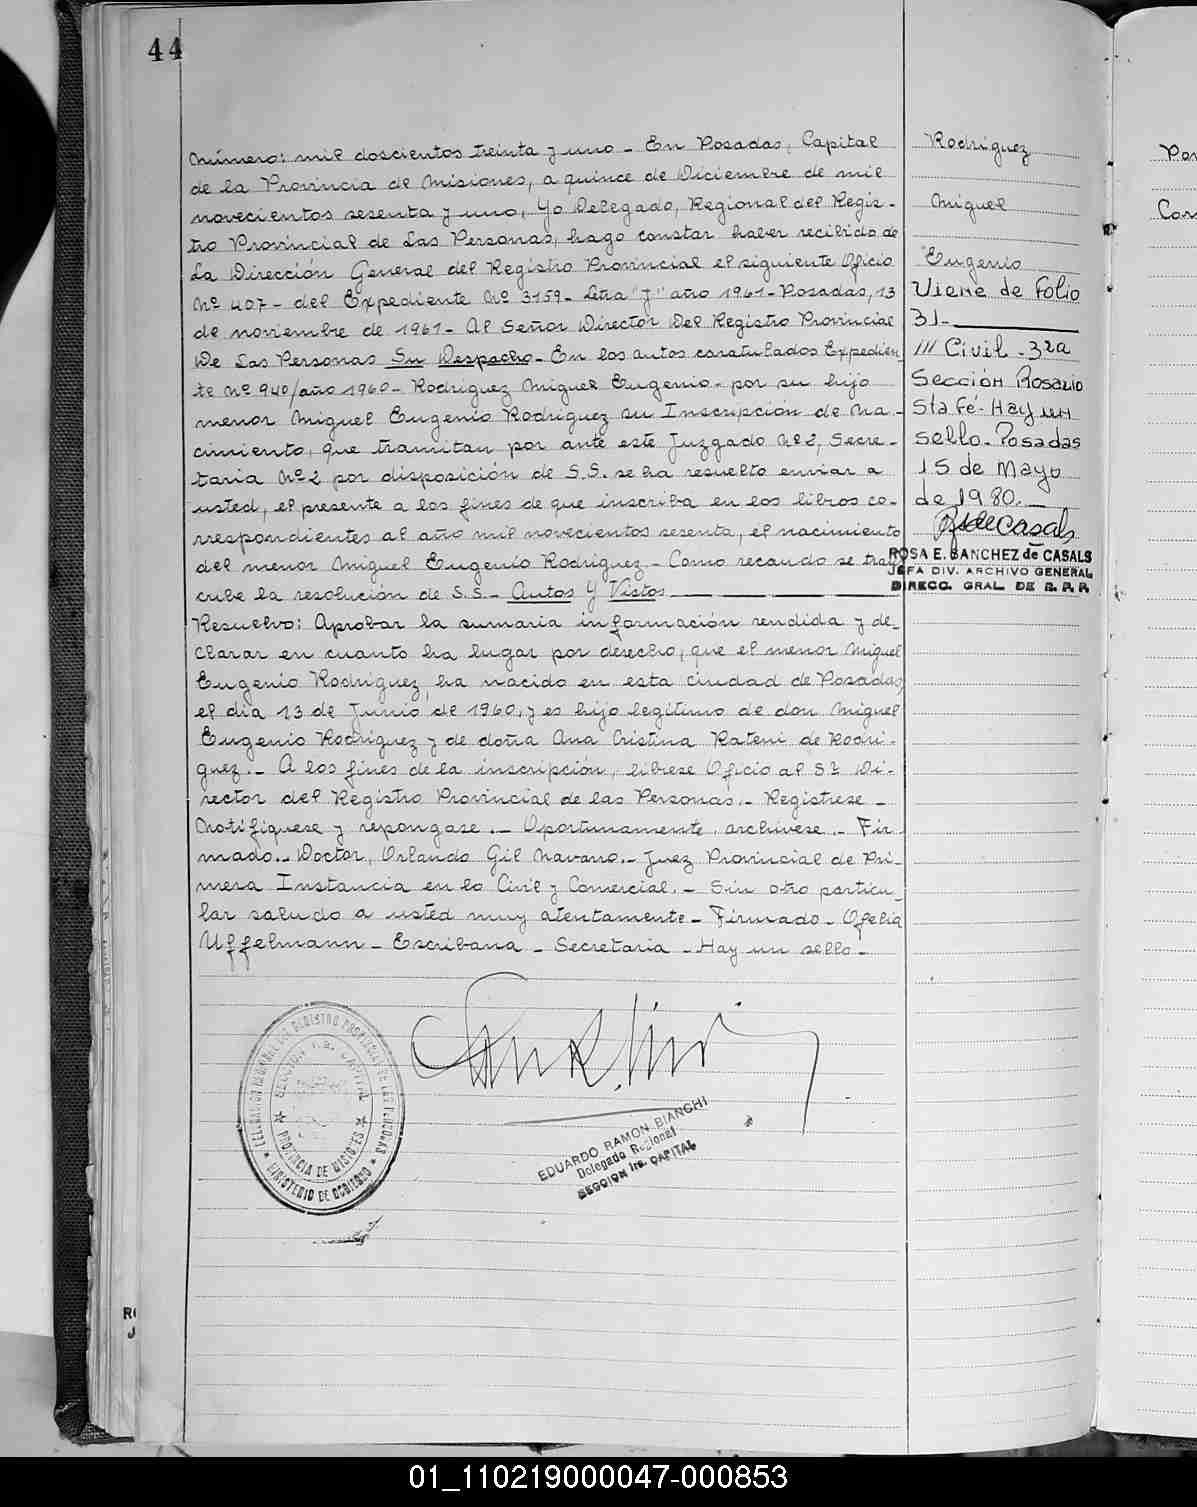 44
Número: mil doscientos treinta y uno - En Posadas, Capital
de la Provincia de Misiones, a quince de Diciembre de mil
novecientos sesenta y uno, Yo Delegado, Regional del Regis-
tro Provincial de Las Personas, hago constar haber recibido de
La Dirección General del Registro Provincial el siguiente Oficio
Nº 407 - del Expediente Nº 3159 - Letra "J" año 1961 - Posadas, 13
de noviembre de 1961 - Al Señor Director Del Registro Provincial
De Las Personas Su Despacho - En los autos caratulados Expedien-
te Nº 940/año 1960 - Rodríguez Miguel Eugenio - por su hijo
menor Miguel Eugenio Rodríguez su Inscripción de Na-
cimiento, que tramitan por ante este Juzgado Nº 2, Secre-
taria Nº 2 por disposición de S.S. se ha resuelto enviar a
usted, el presente a los fines de que inscriba en los libros co-
rrespondientes al año mil novecientos sesenta, el nacimiento
del menor Miguel Eugenio Rodríguez - Como recaudo se trans
cribe la resolución de S.S. - Autos Y Vistos
Resuelvo: Aprobar la sumaria información rendida y de-
clarar en cuanto ha lugar por derecho, que el menor Miguel
Eugenio Rodríguez, ha nacido en esta ciudad de Posadas,
el día 13 de Junio de 1960, y es hijo legítimo de don Miguel
Eugenio Rodríguez y de doña Ana Cristina Rateni de Rodri-
guez. - A los fines de la inscripción, líbrese Oficio al Sr. Di-
rector del Registro Provincial de las Personas. - Regístrese -
Notifíquese y repóngase. - Oportunamente, archívese. - Fir
mado. - Doctor, Orlando Gil Navarro. - Juez Provincial de Pri-
mera Instancia en lo Civil y Comercial. - Sin otro particu-
lar saludo a usted muy atentamente - Firmado - Ofelia
Uffelmann - Escribana - Secretaria - Hay un sello -
Rodríguez
Miguel
Eugenio
Viene de Folio
31-
/// Civil - 32a
Sección Rosario
Sta Fé - Hay un
sello - Posadas
15 de Mayo
de 1980. -
ROSA E. SANCHEZ de CASALS
JEFA DIV. ARCHIVO GENERAL
DIRECC. GRAL. DE R. P. P.
DELEGACION REGIONAL DEL REGISTRO PROVINCIAL DE LAS PERSONAS
SECCION 1ra. CAPITAL
PROVINCIA DE MISIONES
MINISTERIO DE GOBIERNO
EDUARDO RAMON BIANCHI
Delegado Regional
SECCION 1ra. CAPITAL
01_110219000047-000853